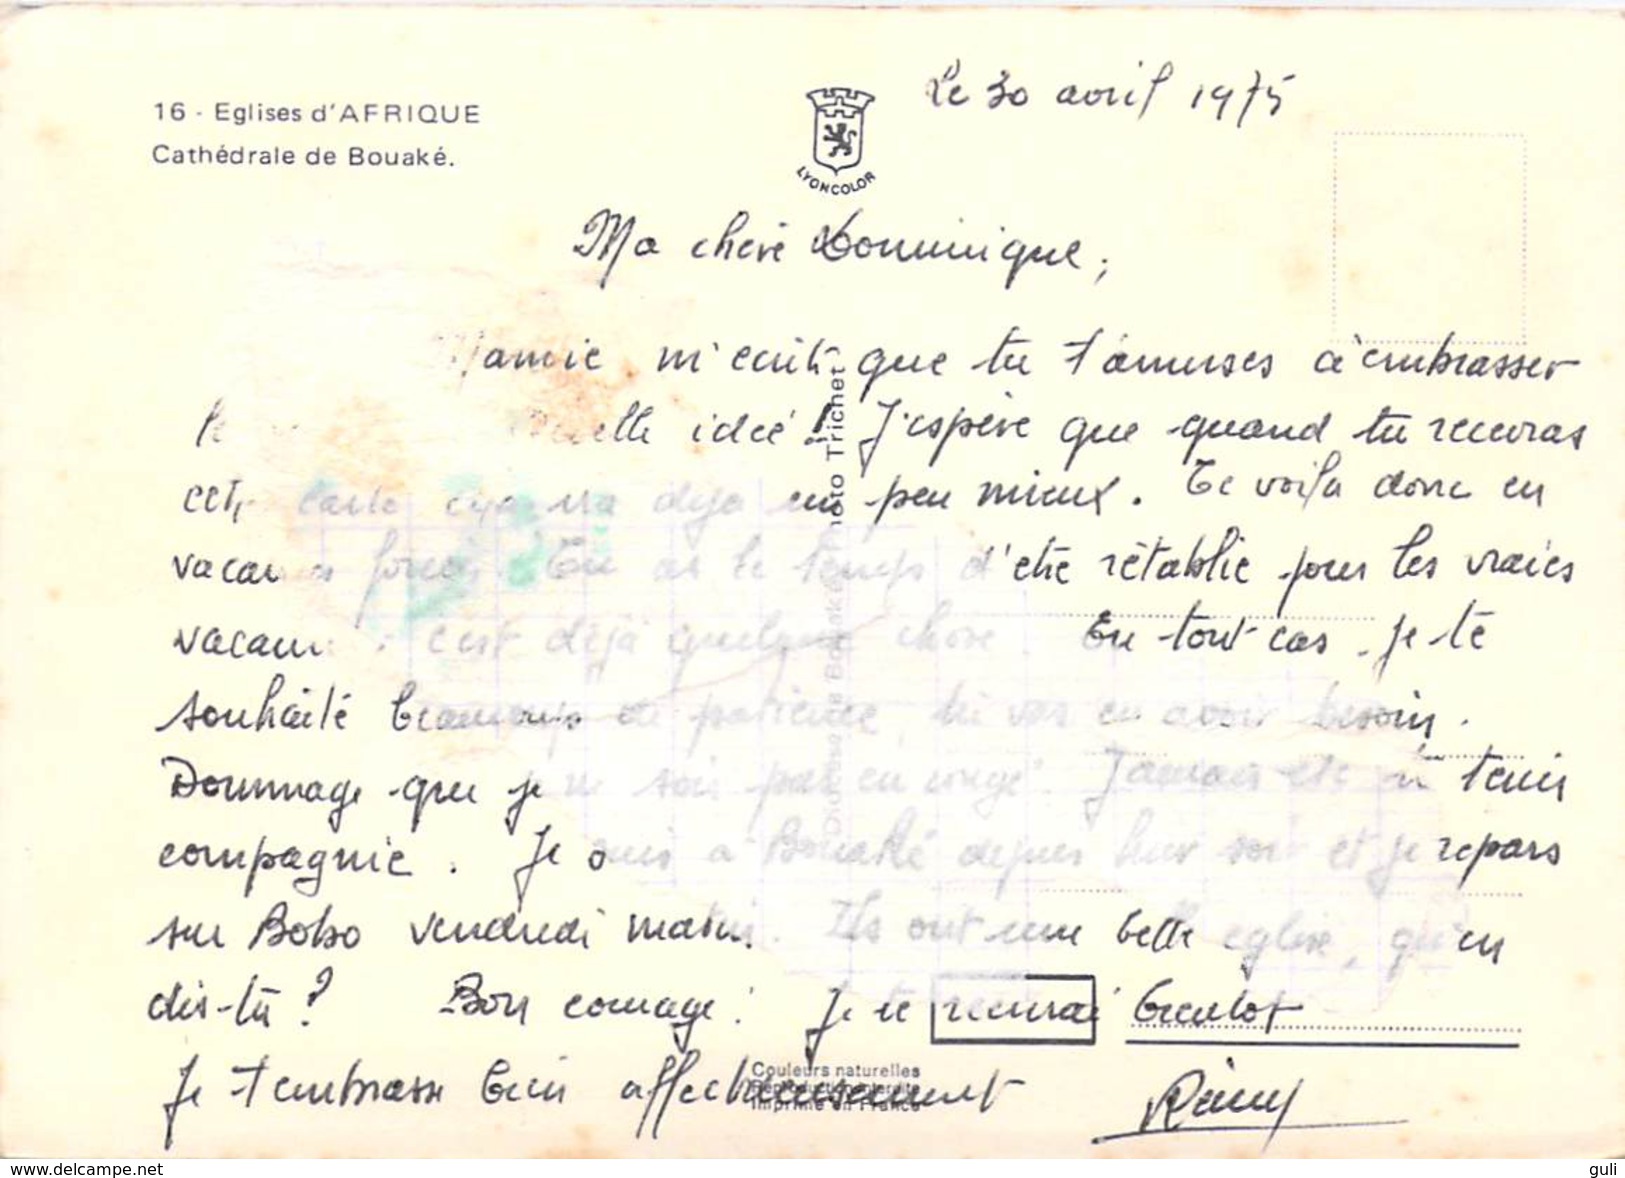 16 - Eglises d'AFRIQUE
Cathédrale de Bouaké.
LYONCOLOR
Le 30 avril 1975
Ma chère Dominique,
Mamie m'écrit que tu t'amuses à embrasser
quelle idée ! J'espère que quand tu recevras
cette carte ça ira déjà un peu mieux. Te voilà donc en
vacances forcées. Tu as le temps d'être rétablie pour les vraies
vacances. c'est déjà quelque chose. En tout cas je te
souhaite beaucoup de patience, tu vas en avoir besoin.
Dommage que je ne sois pas en congé. J'aurais été te tenir
compagnie. Je suis à Bouaké depuis hier soir et je repars
sur Bobo vendredi matin. Ils ont une belle église, qu'en
dis-tu ? Bon courage ! Je te bientôt
Je t'embrasse bien affectueusement
Rémy
Photo Trichet
Diocèse de Bouaké
Couleurs naturelles
Reproduction interdite
Imprimé en France
www.delcampe.net
guli